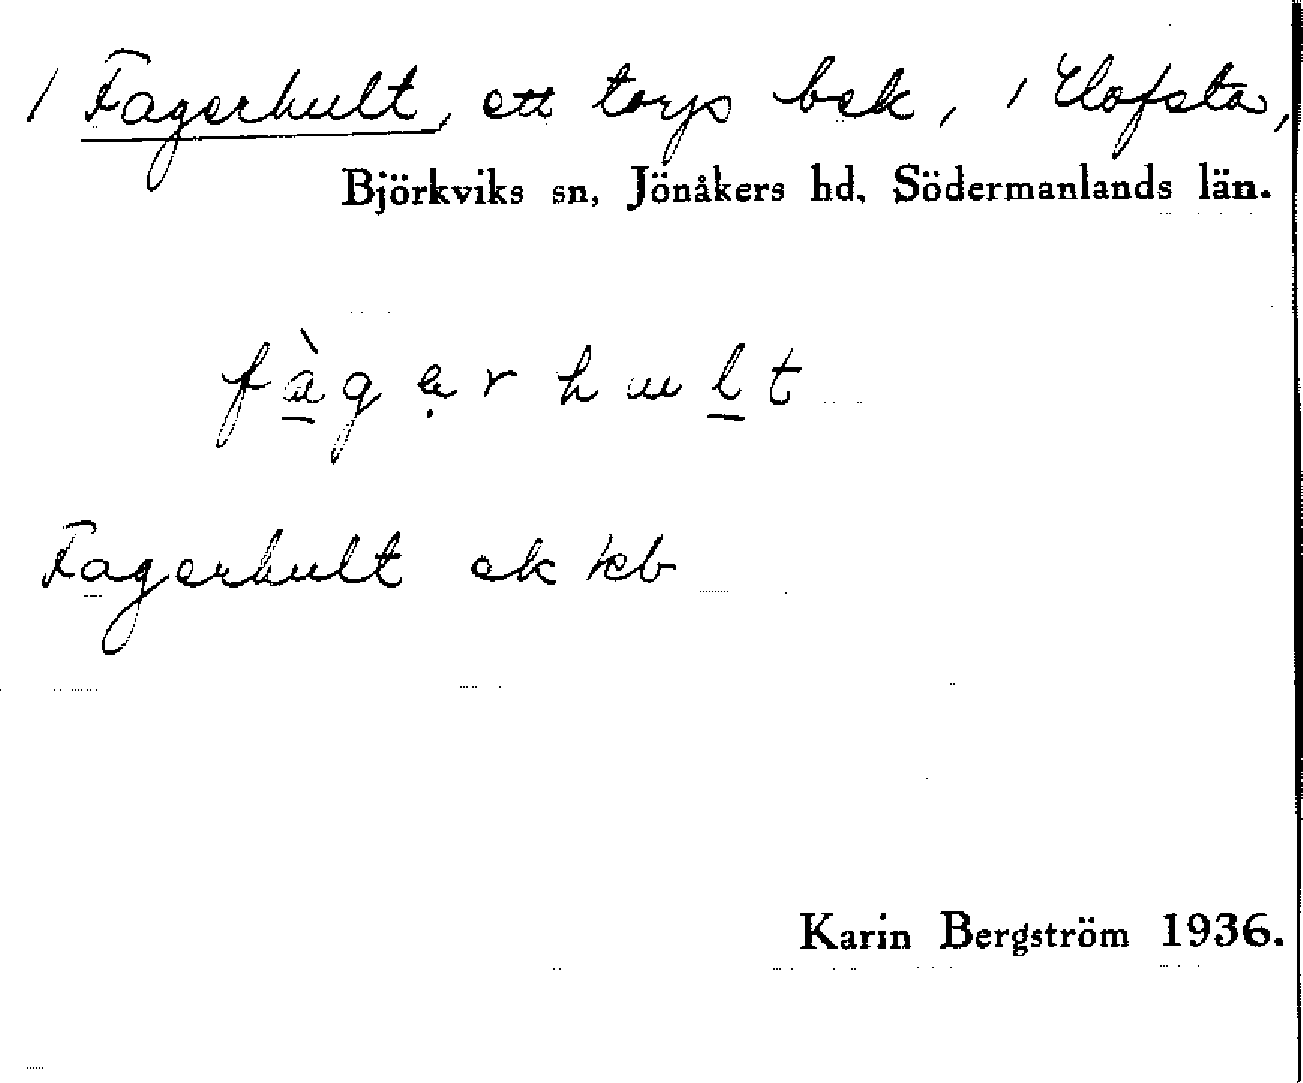 / Fagerhult, ett torps bek, / Elofsta,
Björkviks sn, Jönåkers hd, Södermanlands län.
fàgẹrhult
Fagerhult ek kb
Karin Bergström 1936.